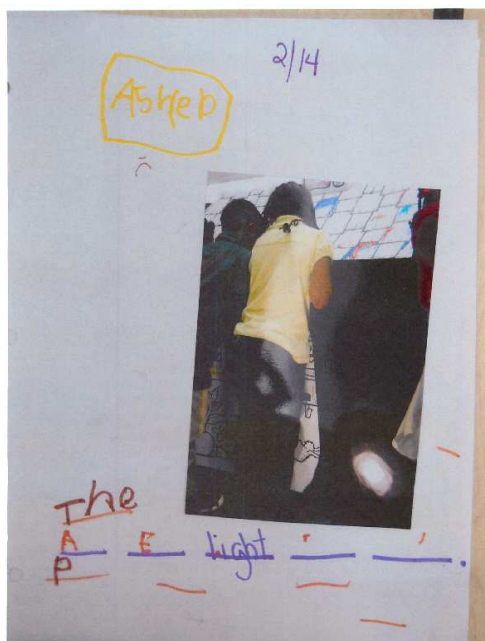 2/14
Asher
The
A E light
P